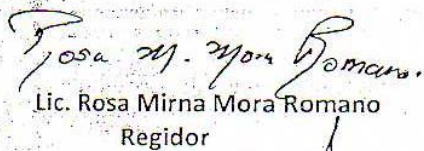 Rosa M. Mora Romano.
Lic. Rosa Mirna Mora Romano
Regidor